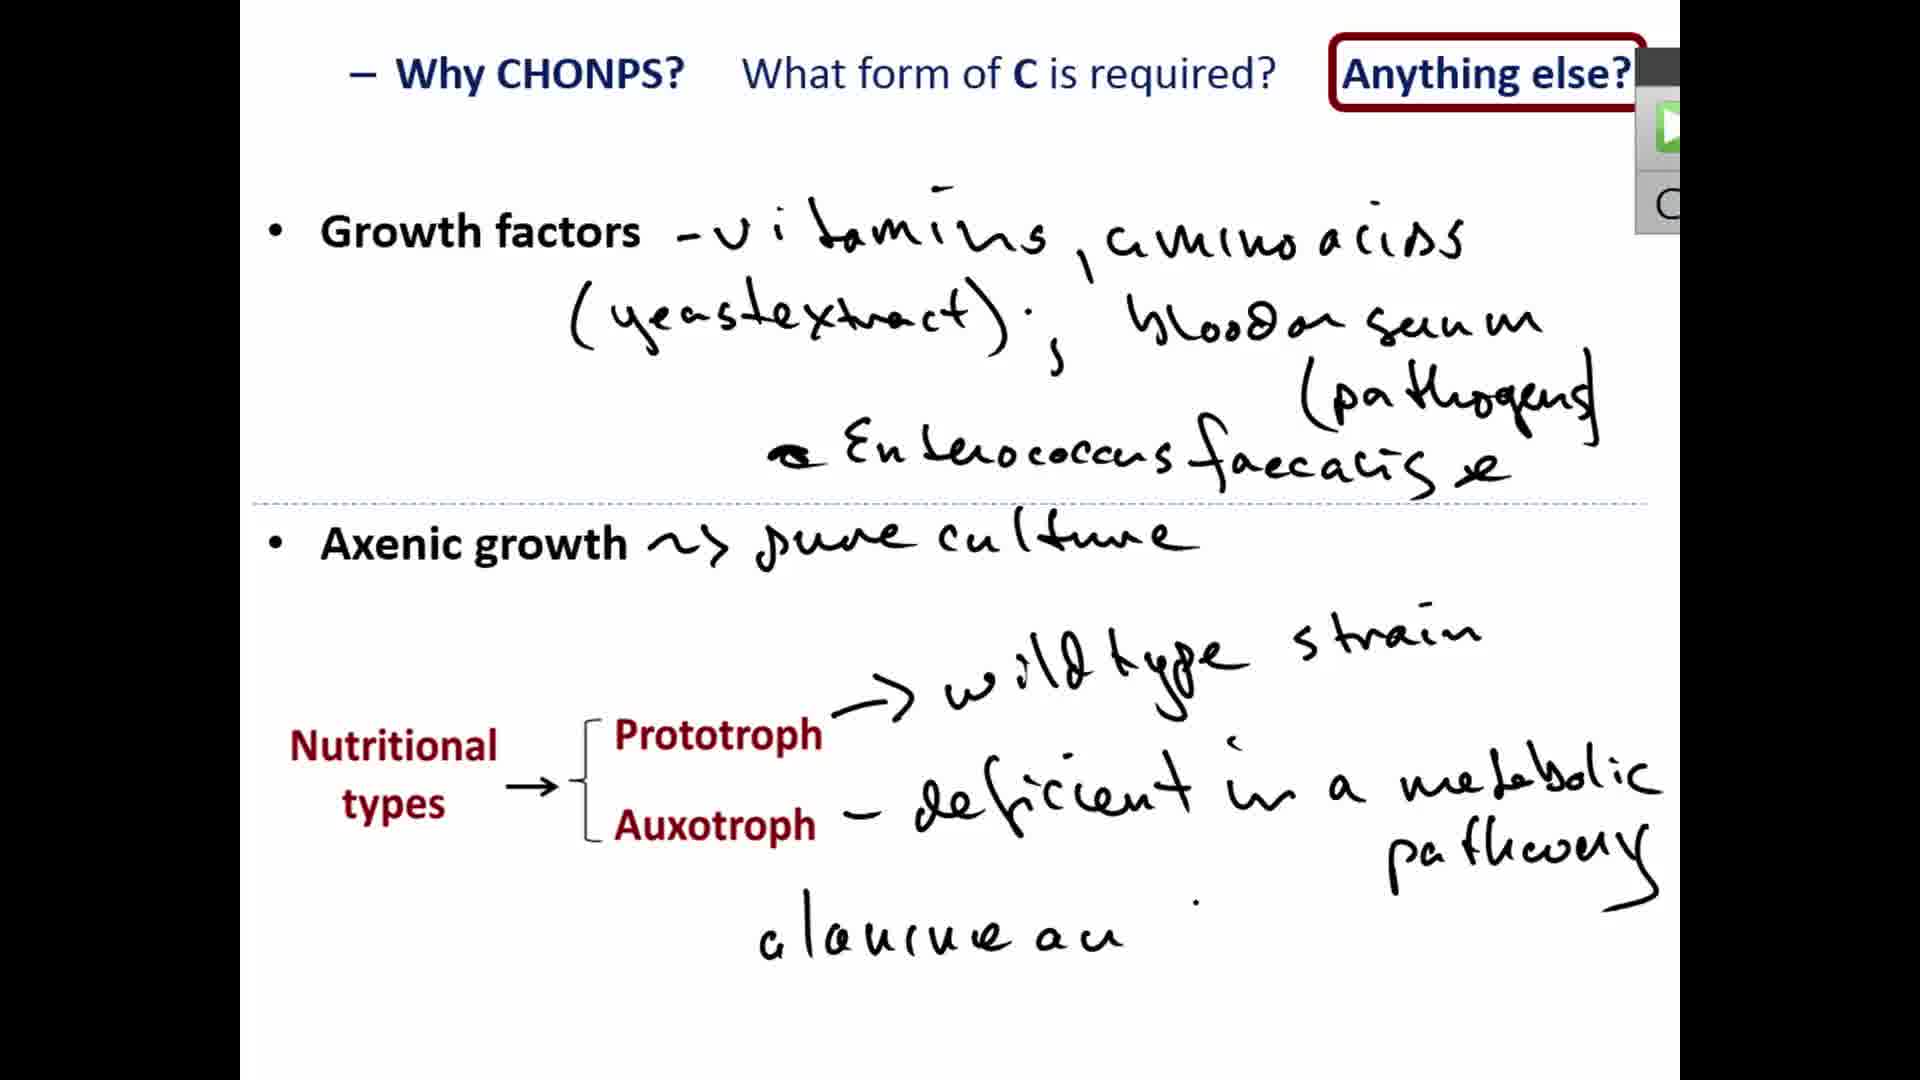 – Why CHONPS? What form of C is required? Anything else?
• Growth factors - vitamins, amino acids
(yeast extract); blood or serum
(pathogens)
Enterococcus faecalis
• Axenic growth ~> pure culture
Prototroph -> wild type strain
Nutritional types →
Auxotroph - deficient in a metabolic
pathway
alanine au